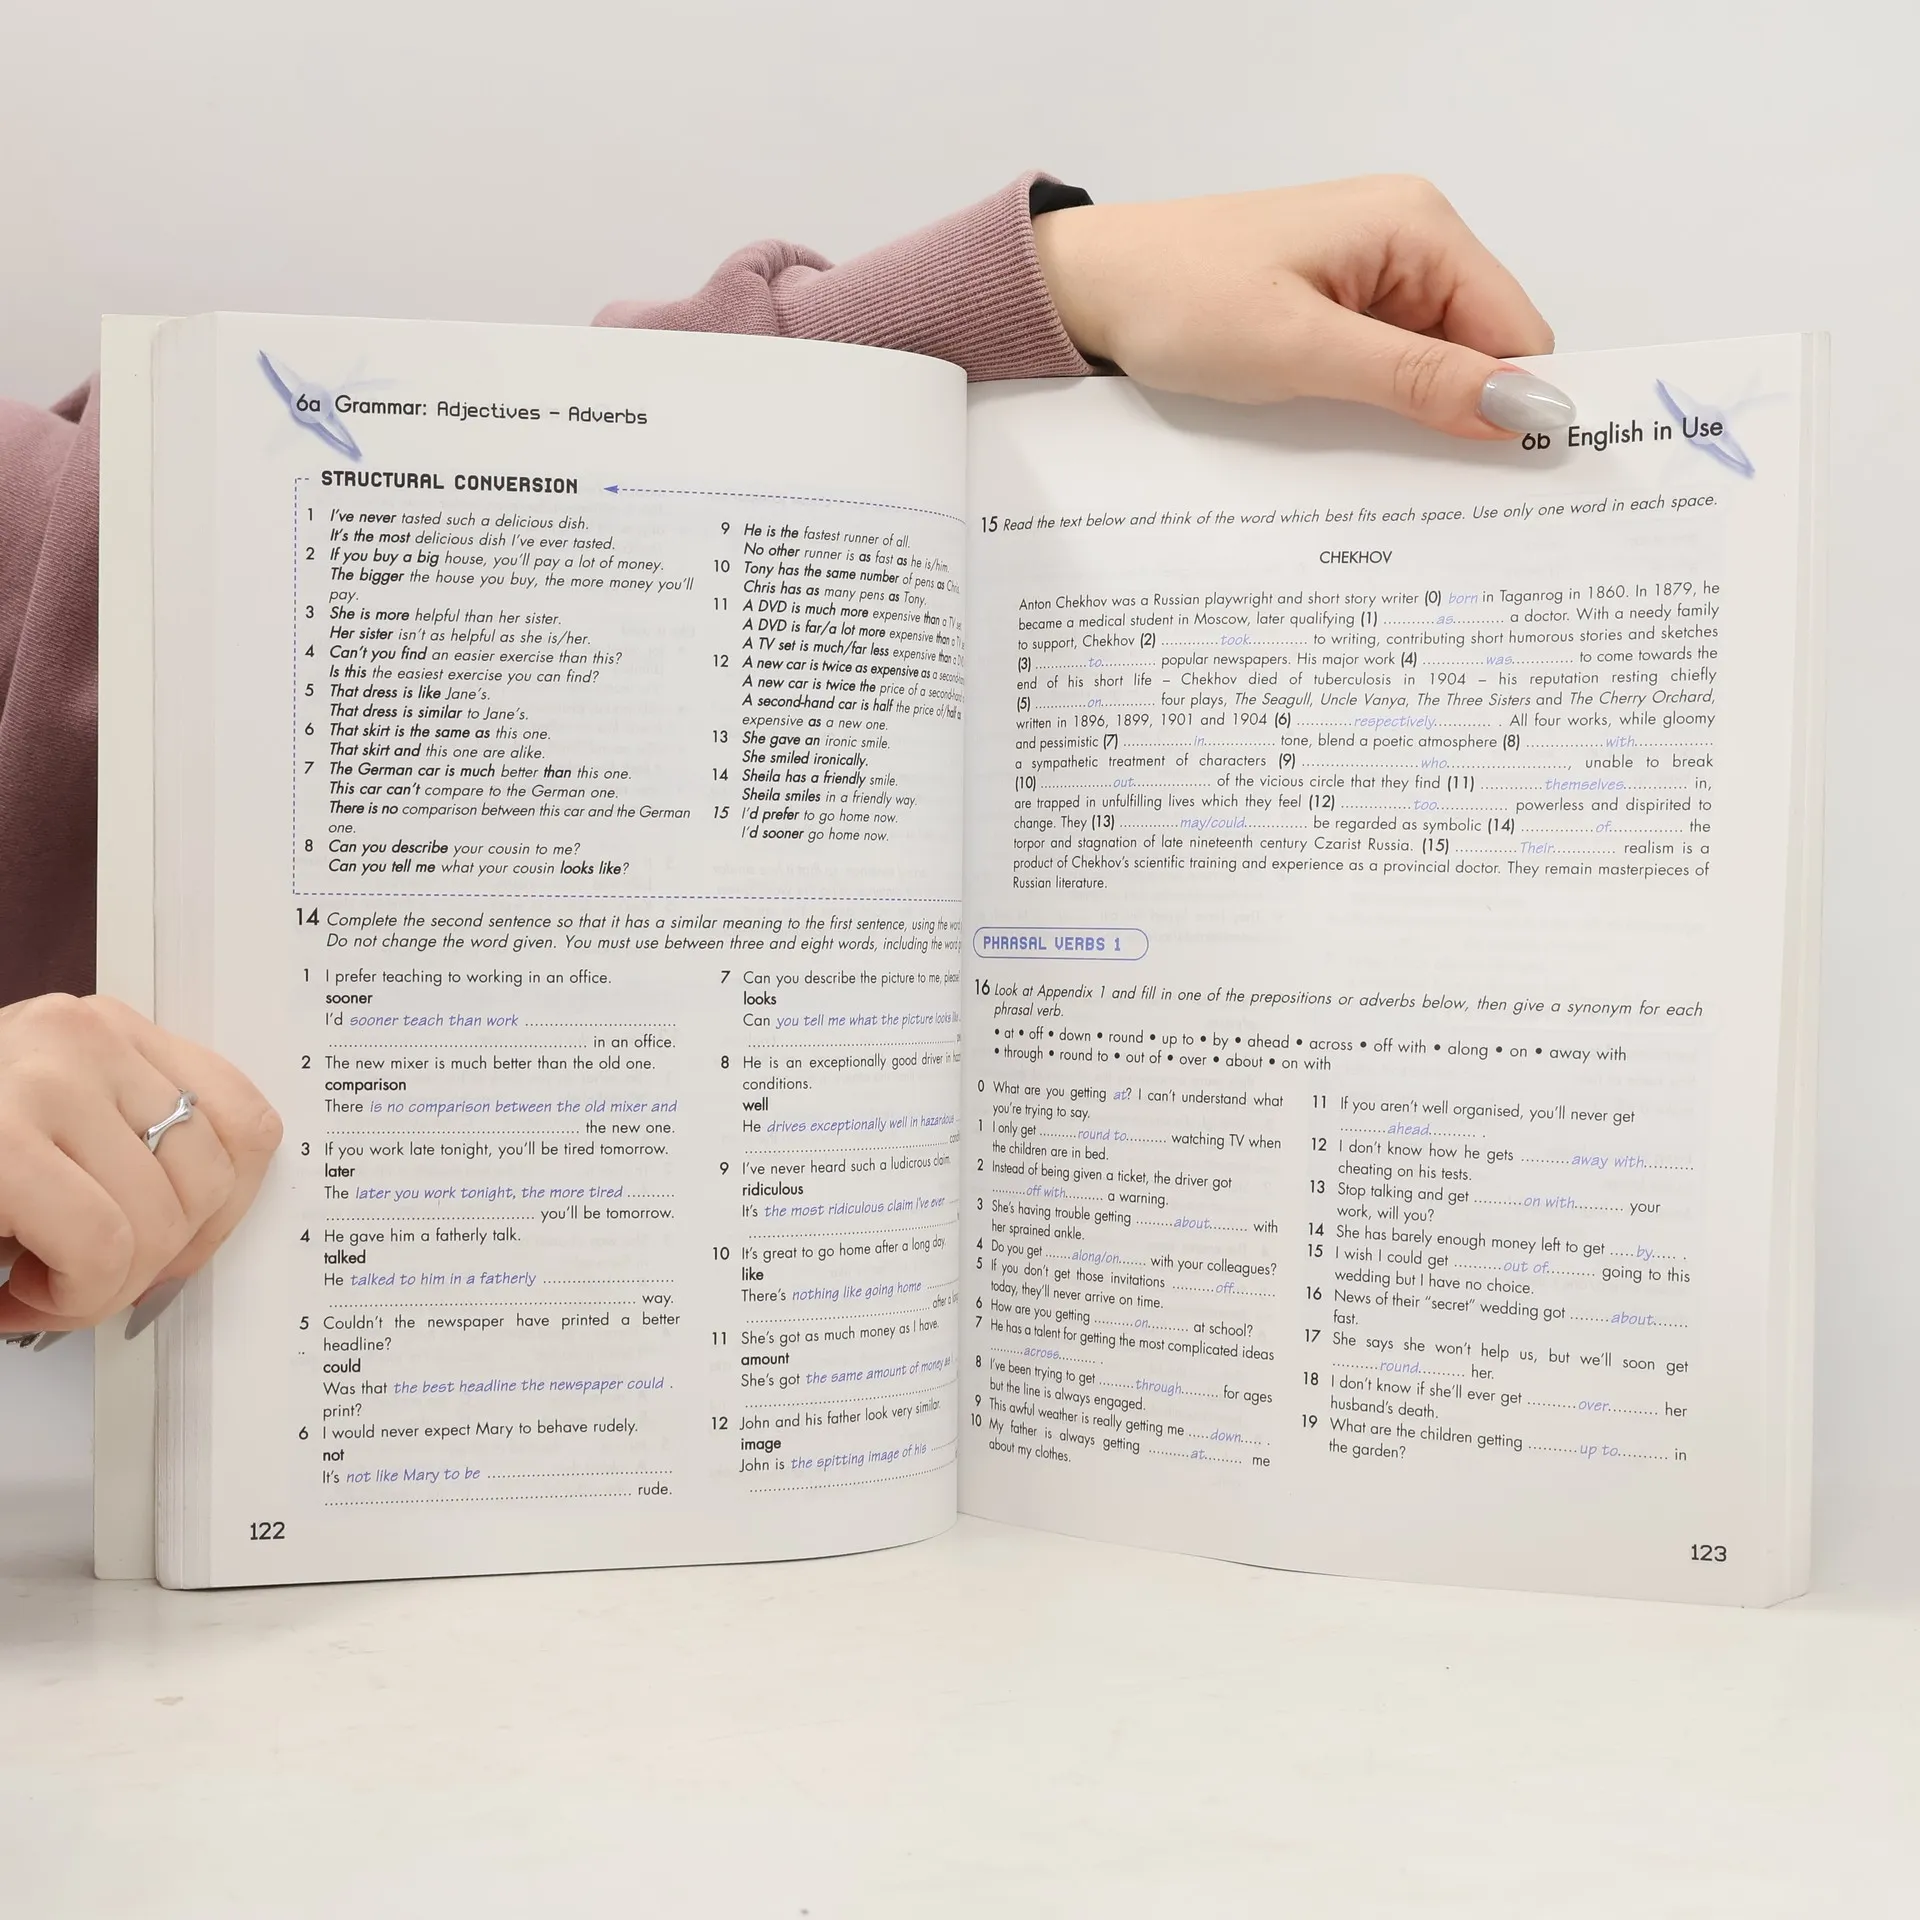 6a Grammar: Adjectives – Adverbs
STRUCTURAL CONVERSION
1 I've never tasted such a delicious dish.
It's the most delicious dish I've ever tasted.
2 If you buy a big house, you'll pay a lot of money.
The bigger the house you buy, the more money you'll
pay.
3 She is more helpful than her sister.
Her sister isn't as helpful as she is/her.
4 Can't you find an easier exercise than this?
Is this the easiest exercise you can find?
5 That dress is like Jane's.
That dress is similar to Jane's.
6 That skirt is the same as this one.
That skirt and this one are alike.
7 The German car is much better than this one.
This car can't compare to the German one.
There is no comparison between this car and the German
one.
8 Can you describe your cousin to me?
Can you tell me what your cousin looks like?
9 He is the fastest runner of all.
No other runner is as fast as he is/him.
10 Tony has the same number of pens as Chris.
Chris has as many pens as Tony.
11 A DVD is much more expensive than a TV
A DVD is far/a lot more expensive than a TV
A TV set is much/far less expensive than a
12 A new car is twice as expensive as a
A new car is twice the price of a
A second-hand car is half the price of/half
expensive as a new one.
13 She gave an ironic smile.
She smiled ironically.
14 Sheila has a friendly smile.
Sheila smiles in a friendly way.
15 I'd prefer to go home now.
I'd sooner go home now.
14 Complete the second sentence so that it has a similar meaning to the first sentence, using the
Do not change the word given. You must use between three and eight words, including the word
1 I prefer teaching to working in an office.
sooner
I'd sooner teach than work ..............................
.................................................... in an office.
2 The new mixer is much better than the old one.
comparison
There is no comparison between the old mixer and
.................................................... the new one.
3 If you work late tonight, you'll be tired tomorrow.
later
The later you work tonight, the more tired ..........
.......................................... you'll be tomorrow.
4 He gave him a fatherly talk.
talked
He talked to him in a fatherly ..........................
.............................................................. way.
5 Couldn't the newspaper have printed a better
headline?
could
Was that the best headline the newspaper could .
print?
6 I would never expect Mary to behave rudely.
not
It's not like Mary to be .....................................
.............................................................. rude.
7 Can you describe the picture to me, please?
looks
Can you tell me what the picture looks
8 He is an exceptionally good driver in
conditions.
well
He drives exceptionally well in hazardous
9 I've never heard such a ludicrous claim.
ridiculous
It's the most ridiculous claim I've ever
10 It's great to go home after a long day.
like
There's nothing like going home ........
after a
11 She's got as much money as I have.
amount
She's got the same amount of money as
12 John and his father look very similar.
image
John is the spitting image of his .......
122
6b English in Use
15 Read the text below and think of the word which best fits each space. Use only one word in each space.
CHEKHOV
Anton Chekhov was a Russian playwright and short story writer (0) born in Taganrog in 1860. In 1879, he
became a medical student in Moscow, later qualifying (1) ...........as.......... a doctor. With a needy family
to support, Chekhov (2) ............took............ to writing, contributing short humorous stories and sketches
(3) ...........to............ popular newspapers. His major work (4) .............was............ to come towards the
end of his short life – Chekhov died of tuberculosis in 1904 – his reputation resting chiefly
(5) ...........on............ four plays, The Seagull, Uncle Vanya, The Three Sisters and The Cherry Orchard,
written in 1896, 1899, 1901 and 1904 (6) ............respectively............ . All four works, while gloomy
and pessimistic (7) ...............in............... tone, blend a poetic atmosphere (8) ................with................
a sympathetic treatment of characters (9) .........................who........................., unable to break
(10) ...............out................ of the vicious circle that they find (11) .............themselves............ in,
are trapped in unfulfilling lives which they feel (12) ...............too............... powerless and dispirited to
change. They (13) ............may/could............ be regarded as symbolic (14) ...............of............... the
torpor and stagnation of late nineteenth century Czarist Russia. (15) .............Their............. realism is a
product of Chekhov's scientific training and experience as a provincial doctor. They remain masterpieces of
Russian literature.
PHRASAL VERBS 1
16 Look at Appendix 1 and fill in one of the prepositions or adverbs below, then give a synonym for each
phrasal verb.
• at • off • down • round • up to • by • ahead • across • off with • along • on • away with
• through • round to • out of • over • about • on with
0 What are you getting at? I can't understand what
you're trying to say.
1 I only get ..........round to.......... watching TV when
the children are in bed.
2 Instead of being given a ticket, the driver got
..........off with.......... a warning.
3 She's having trouble getting ..........about.......... with
her sprained ankle.
4 Do you get .......along/on....... with your colleagues?
5 If you don't get those invitations ..........off..........
today, they'll never arrive on time.
6 How are you getting ..........on.......... at school?
7 He has a talent for getting the most complicated ideas
.........across.......... .
8 I've been trying to get .........through......... for ages
but the line is always engaged.
9 This awful weather is really getting me .....down..... .
10 My father is always getting ..........at.......... me
about my clothes.
11 If you aren't well organised, you'll never get
..........ahead.......... .
12 I don't know how he gets ..........away with..........
cheating on his tests.
13 Stop talking and get ..........on with.......... your
work, will you?
14 She has barely enough money left to get .....by..... .
15 I wish I could get ..........out of.......... going to this
wedding but I have no choice.
16 News of their "secret" wedding got ........about........
fast.
17 She says she won't help us, but we'll soon get
..........round.......... her.
18 I don't know if she'll ever get ..........over.......... her
husband's death.
19 What are the children getting ..........up to.......... in
the garden?
123